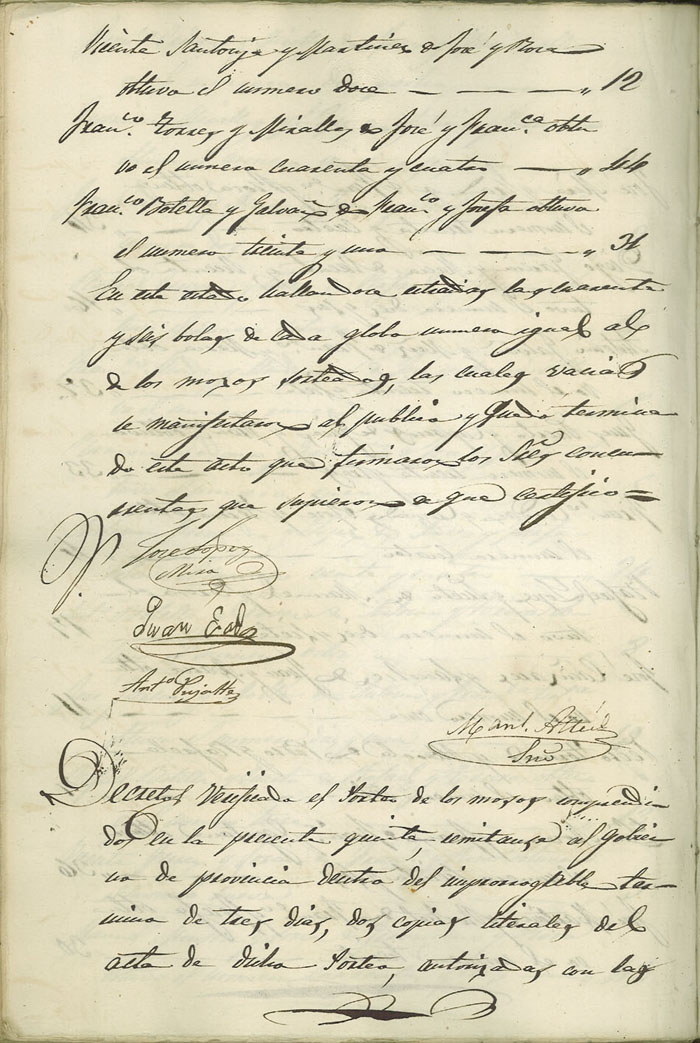 Vicente Santonja y Martinez de José y Rosa
obtuvo el numero doce — — — „ 12
Fran.co Torres y Miralles de José y Fran.ca obtu
vo el numero cuarenta y cuatro — „ 44
Fran.co Botella y Galvañ de Fran.co y Josefa obtuvo
el numero treinta y uno — — — „ 31
En este estado hallandose estraidas las cuarenta
y seis bolas de cada globo numero igual al
de los mozos sorteados, las cuales vacias
se manifestaron al publico y quedó termina
do este acto que firmaron los Sres concu-
rrentes que supieron de que certifico=
P. Jose Lopez
Mira
Juan
Anto
Manl.
Srio
Decreto/ Verificado el Sorteo de los mozos comprendi
dos en la presente quinta, remitanse al Gobier
no de provincia dentro del improrrogable ter-
mino de tres dias, dos copias literales del
acta de dicho Sorteo, autorizadas con las